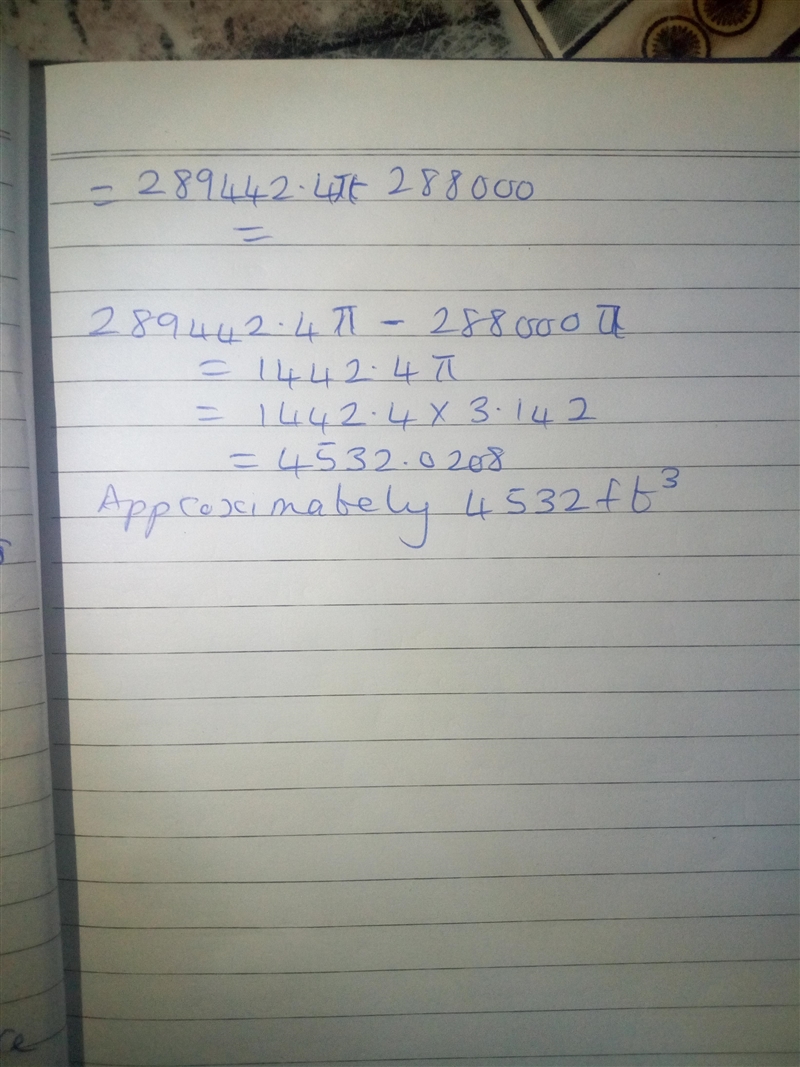 = 289442.4π 288000
=
289442.4π - 288000π
= 1442.4π
= 1442.4 x 3.142
= 4532.0208
Approximately 4532ft³